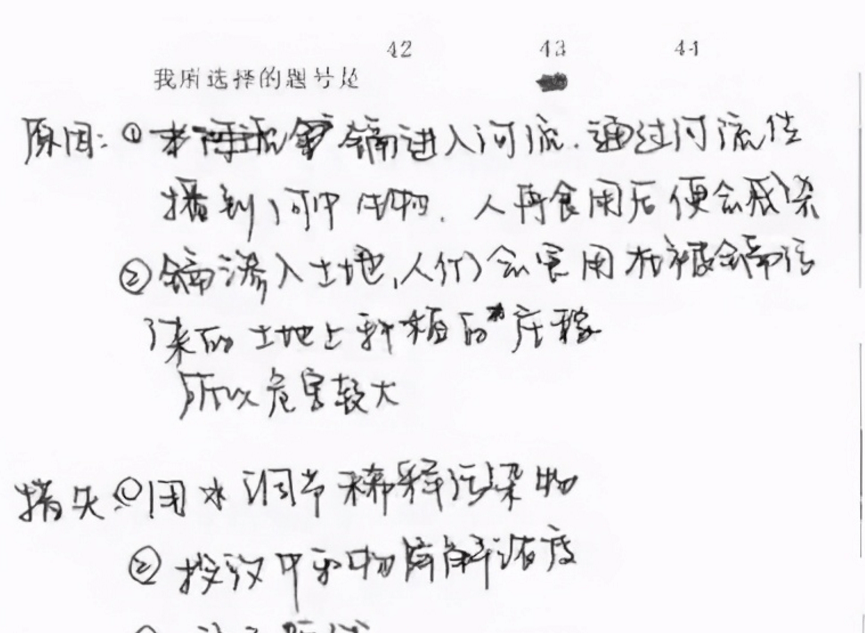 42 43 44
我所选择的题号是
原因:①镉进入河流.通过河流传
播到河中生物.人再食用后便会感染
②镉渗入土地,人们会食用在被镉污
染的土地上种植的庄稼
所以危害较大
措失:①用水调节稀释污染物
②投放中和物降解浓度